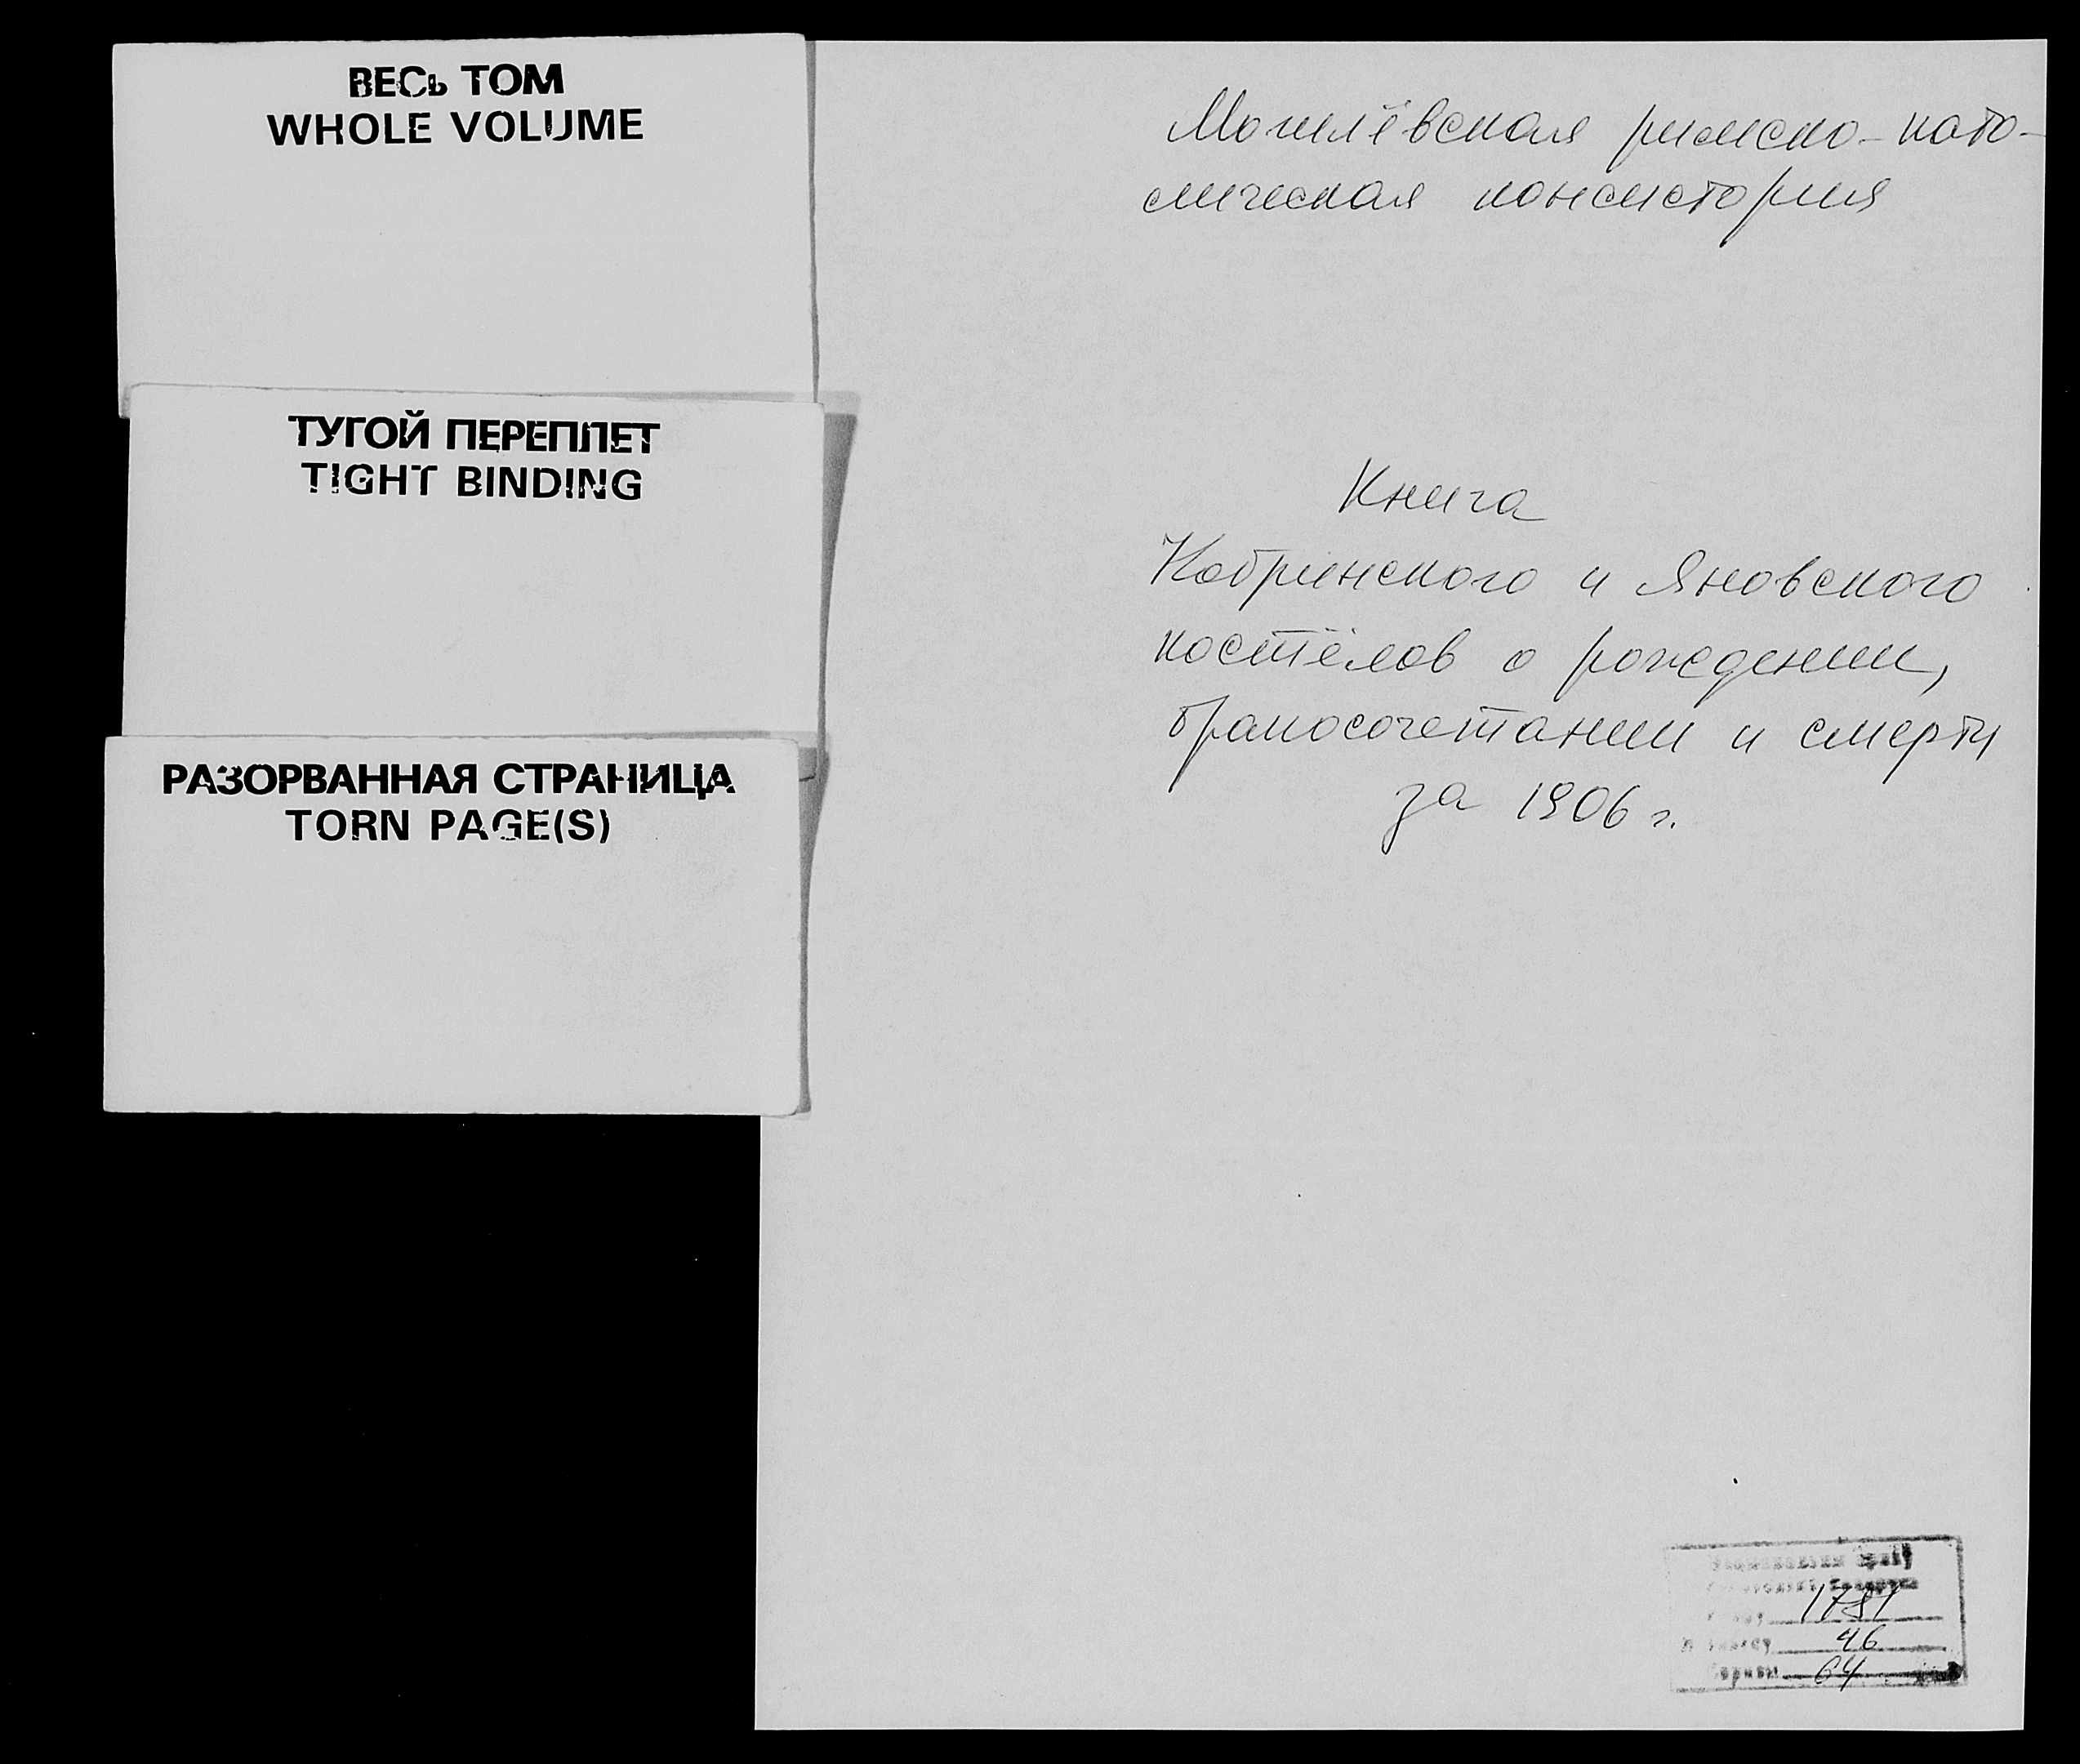 ВЕСЬ ТОМ
WHOLE VOLUME
ТУГОЙ ПЕРЕПЛЕТ
TIGHT BINDING
РАЗОРВАННАЯ СТРАНИЦА
TORN PAGE(S)
Могилёвская римско-като-
лическая консистория
Книга
Кобринского и Яновского
костёлов о рождении,
бракосочетании и смерти
за 1906 г.
1781
46
64